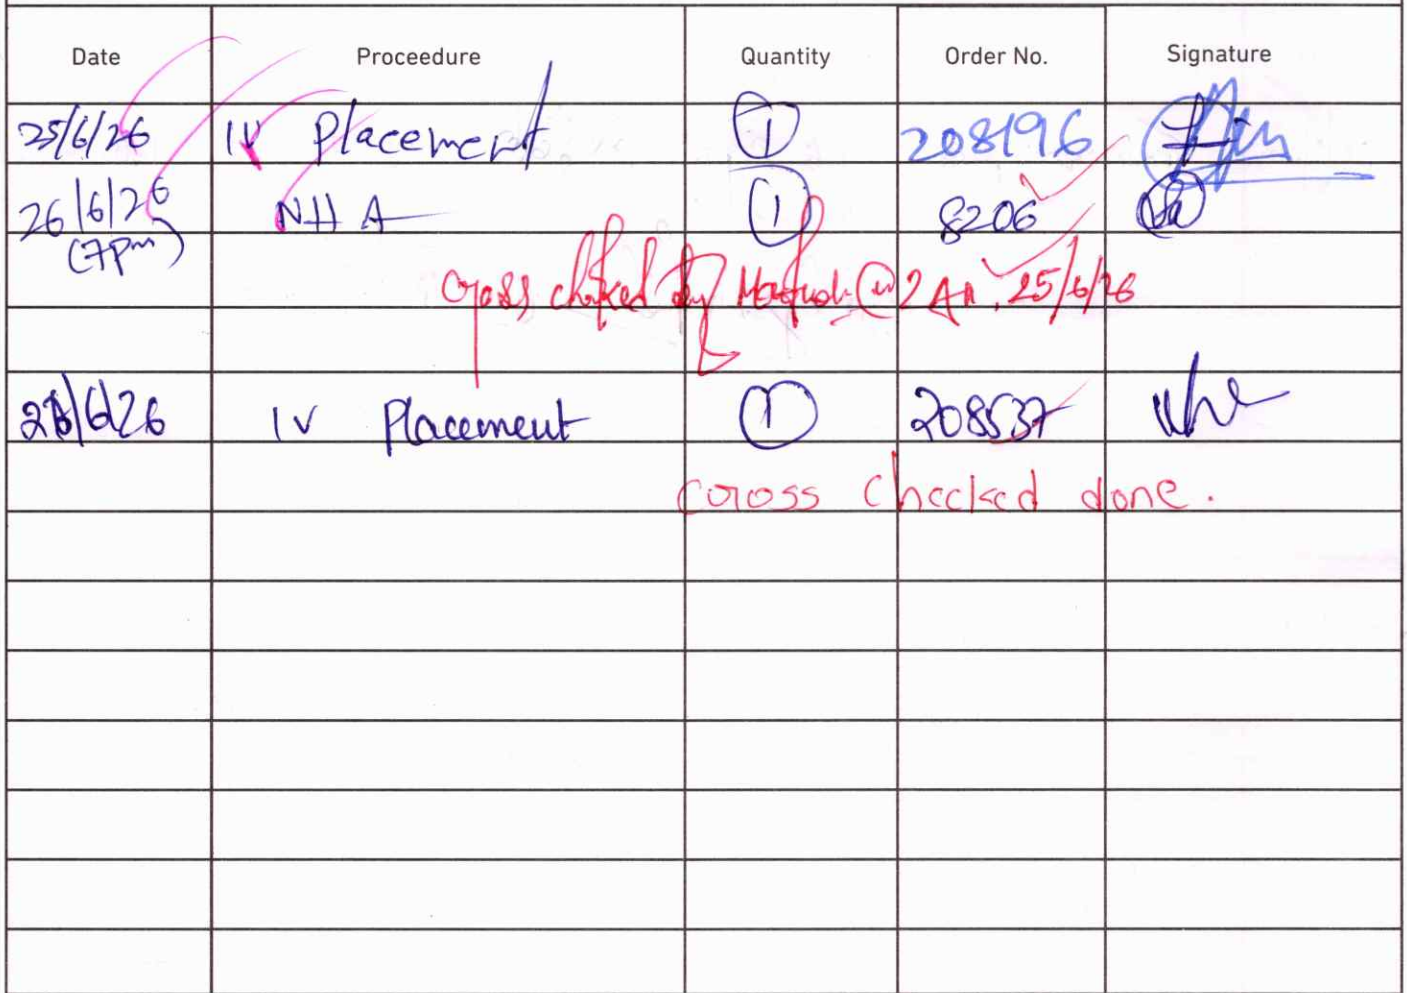 Date Proceedure Quantity Order No. Signature
25/6/26 IV Placement 1 208196
26/6/26 NHA 1 8206
(7pm)
cross checked by @ 2 AM, 25/6/26
/6/26 IV Placement 1 208537
cross checked done.